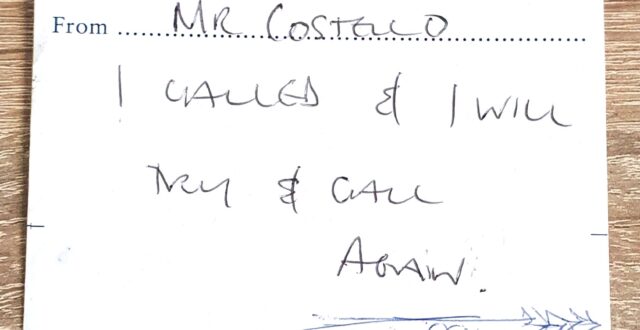 From MR COSTELLO
I CALLED & I WILL
TRY & CALL
AGAIN.